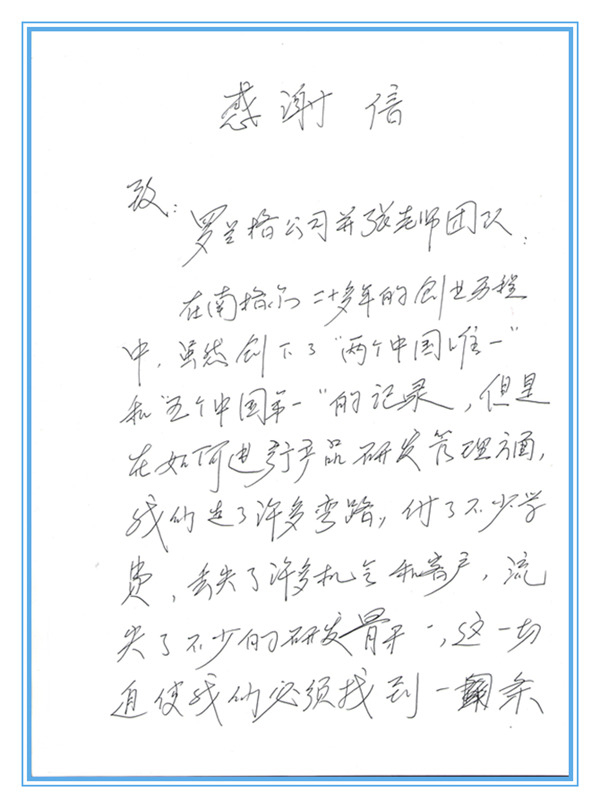 感谢信
致：
罗兰格公司并张老师团队：
在南格尔二十多年的创业历程
中，虽然创下了“两个中国唯一”
和“五个中国第一”的记录，但是
在如何进行产品研发管理方面，
我们走了许多弯路，付了不少学
费，丢失了许多机会和客户，流
失了不少的研发骨干，这一切
迫使我们必须找到一条